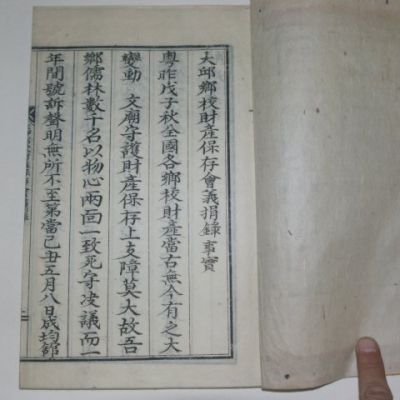 大邱鄕校財產保存會義捐錄事實
粵昨戊子秋全國各鄕校財產當古無今有之大
變動 文廟守護財產保存上支障莫大故吾
鄕儒林數千名以物心兩面一致死守决議而一
年間號訴聲明無所不至第當己丑五月八日成均舘